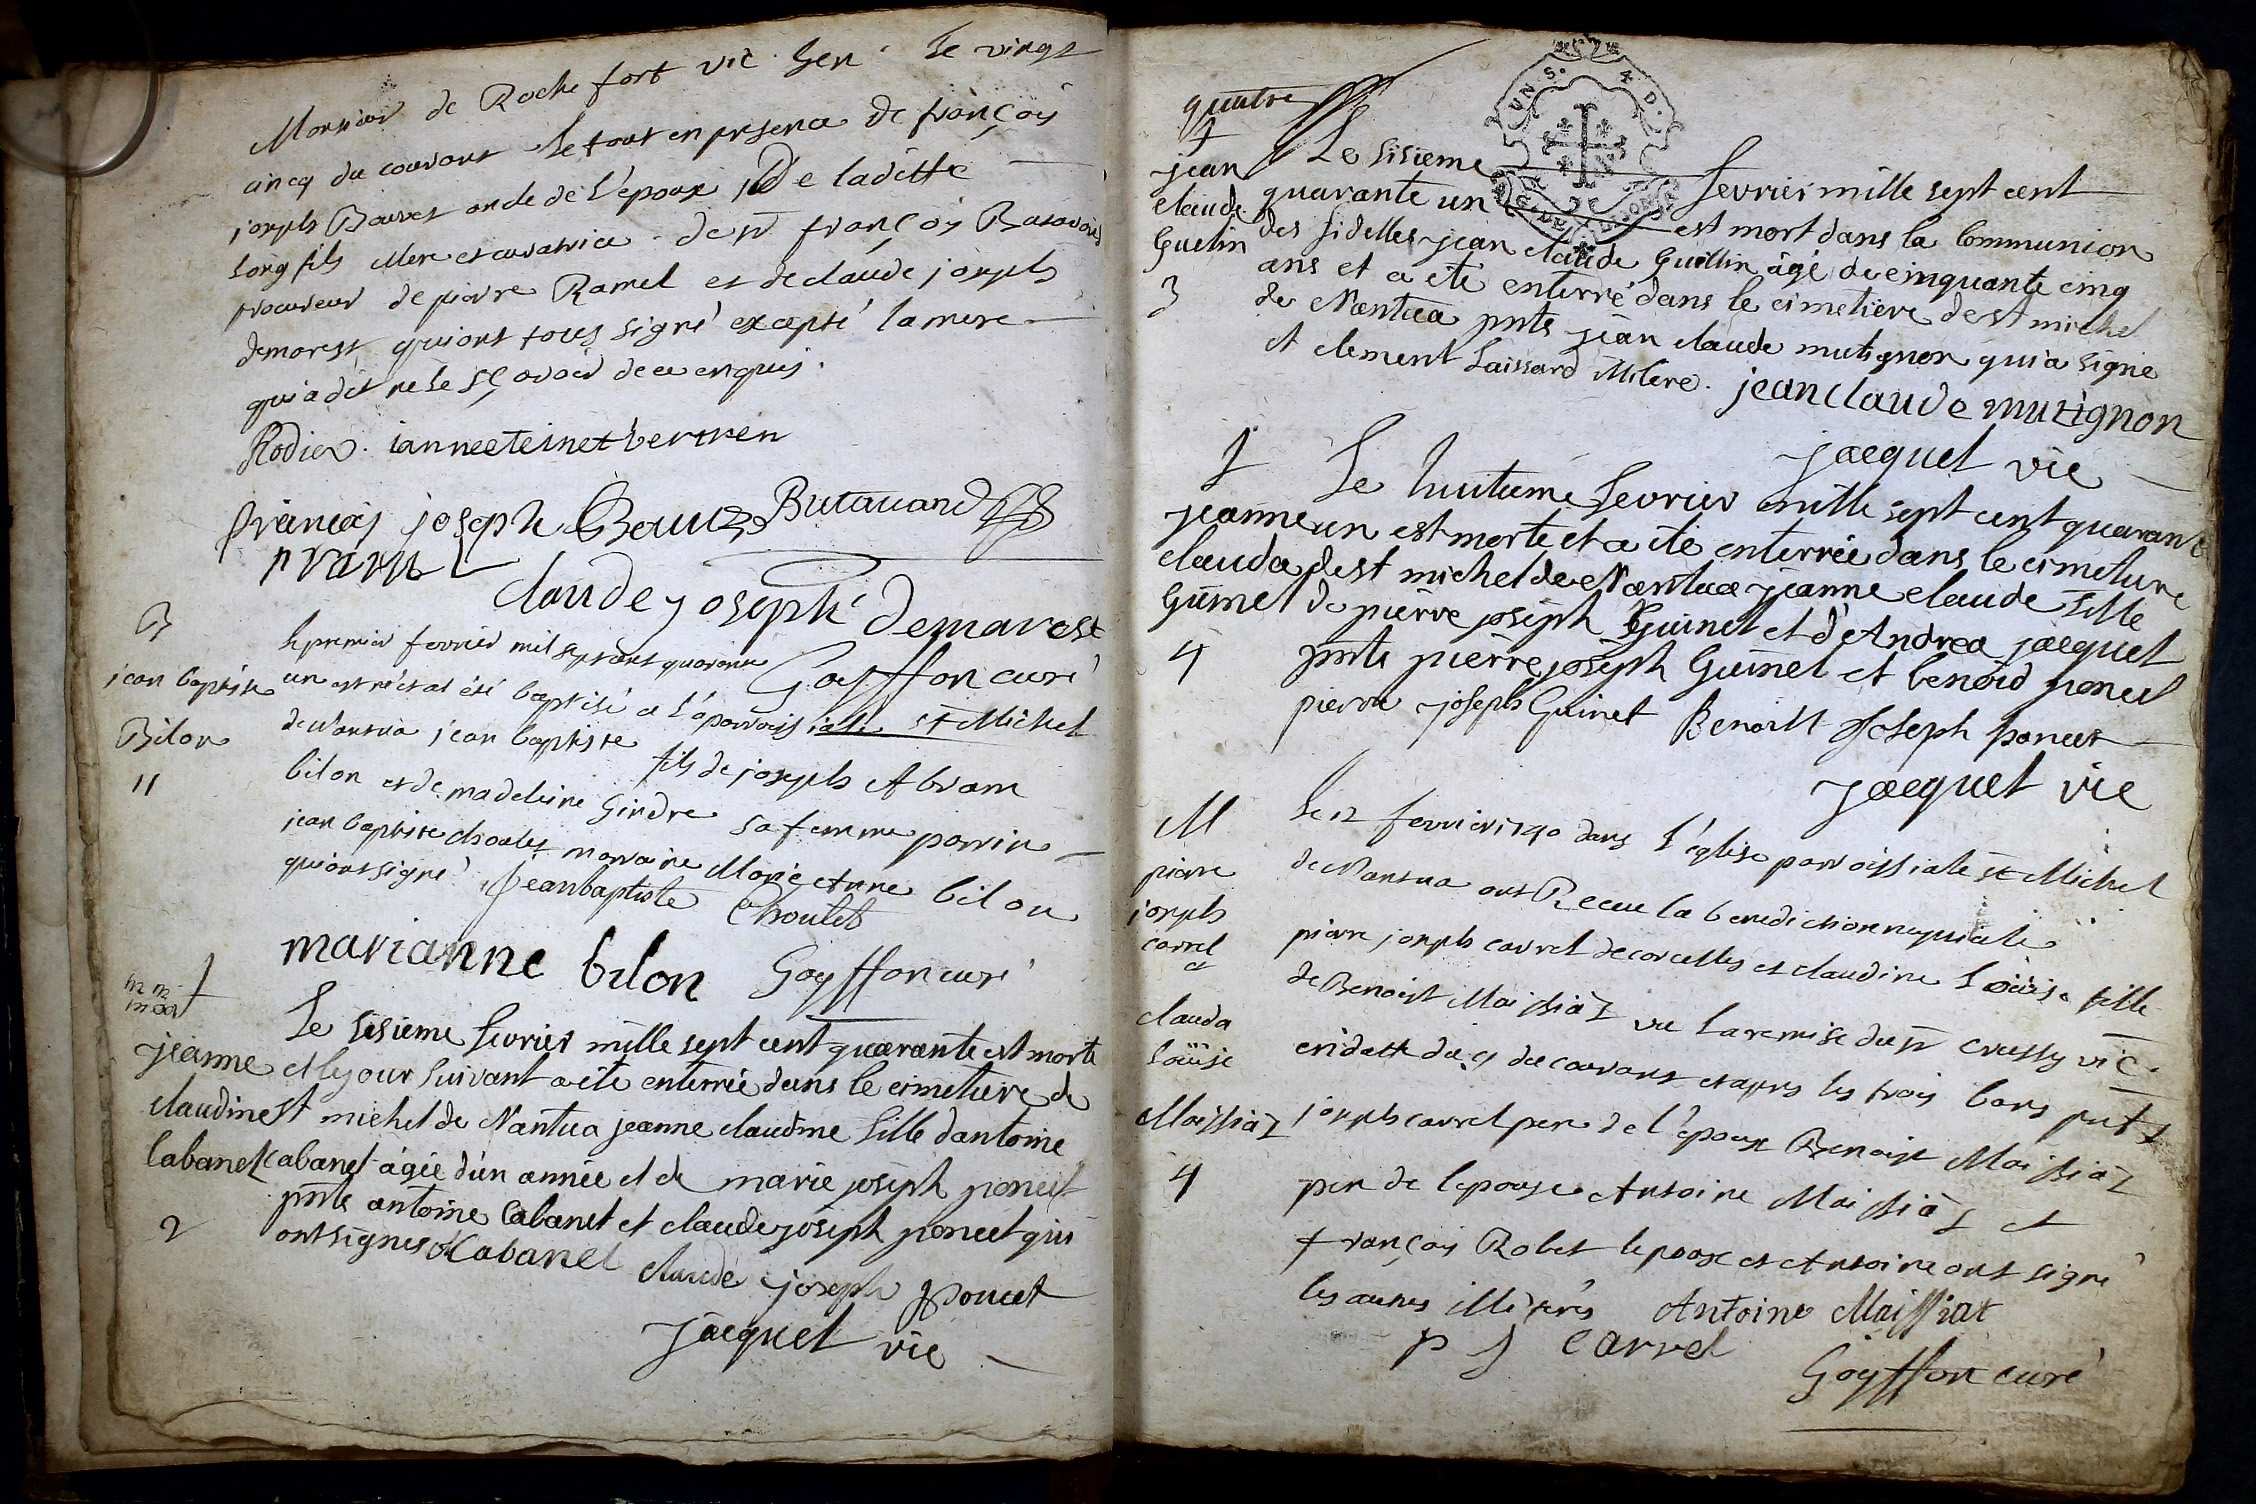 Monsieur de Rochefort vic gen le vingt
cincq du courant le tout en presence de françois
joseph Bouvet oncle de l'epoux, De laditte
song fils Mere et curatrice de sr françois
procureur de pierre Ramel et de claude joseph
demarest qui ont tous signé excepté la mere
qui a dit ne le sçavoir de ce enquis.
Rodier.
françois joseph Bouvet Butavand
claude joseph demarest
B
jean baptiste
Bilon
11
Le premier fevrier mil sept cent quarante Goyffon curé
un est né et at été baptisé a l'eparroissialle st Michel
de Nantua jean baptiste fils de joseph Abram
bilon et de madeleine Gindre sa femme parrin
jean baptiste choulet marraine Marie Anne bilon
qui ont signé jeanbaptiste Choulet
marianne bilon Goyffon curé
†
jeanne
claudine
Cabanet
2
Le sisieme fevrier mille sept cent quarante est morte
et le jour suivant a été enterrée dans le cimetiere de
st michel de Nantua jeanne claudine fille dantoine
Cabanet agée d'un année et de marie joseph poncet
pnts antoine Cabanet et claude joseph poncet qui
ont signes ACabanet claude joseph poncet
Jacquet vic
quatre
†
jean
claude
Guelin
3
UN S. 4 D.
Le sisieme fevrier mille sept cent
quarante un est mort dans la Communion
des fidelles jean claude Guillin âgé de cinquante cinq
ans et a été enterré dans le cimetiere de st michel
de Nantua pnts jean claude mutignon qui a signé
et clement Laissard illitere. jean claude mutignon
Jacquet vic
†
jeanne
clauda
Guinet
4
Le huitieme fevrier mille sept cent quarante
un est morte et a été enterrée dans le cimetiere
de st michel de Nantua jeanne claude fille
de pierre joseph Guinet et d'Andrea jacquet
pnts pierre joseph Guinet et benoid poncet
pierre joseph Guinet Benoitt Joseph poncet
Jacquet vic
M
pierre
joseph
carrel
et
clauda
Loüise
Maissiaz
4
Le 12 fevrier 1740 dans l'église parroissiale st Michel
de Nantua ont Receu la benediction nuptiale
pierre joseph carrel de corcelles et claudine Loüise fille
de Benoist Maissiaz vu la remise du sr crussy vic
en datte du 9 du courant et apres les trois bans pnts
joseph carrel pere de l'epoux Benoist Maissiaz
pere de lepouse Antoine Maissiaz et
françois Robet lepoux et Antoine ont signé
les autres illiterés Antoine Maissiat
p j carrel
Goyffon curé